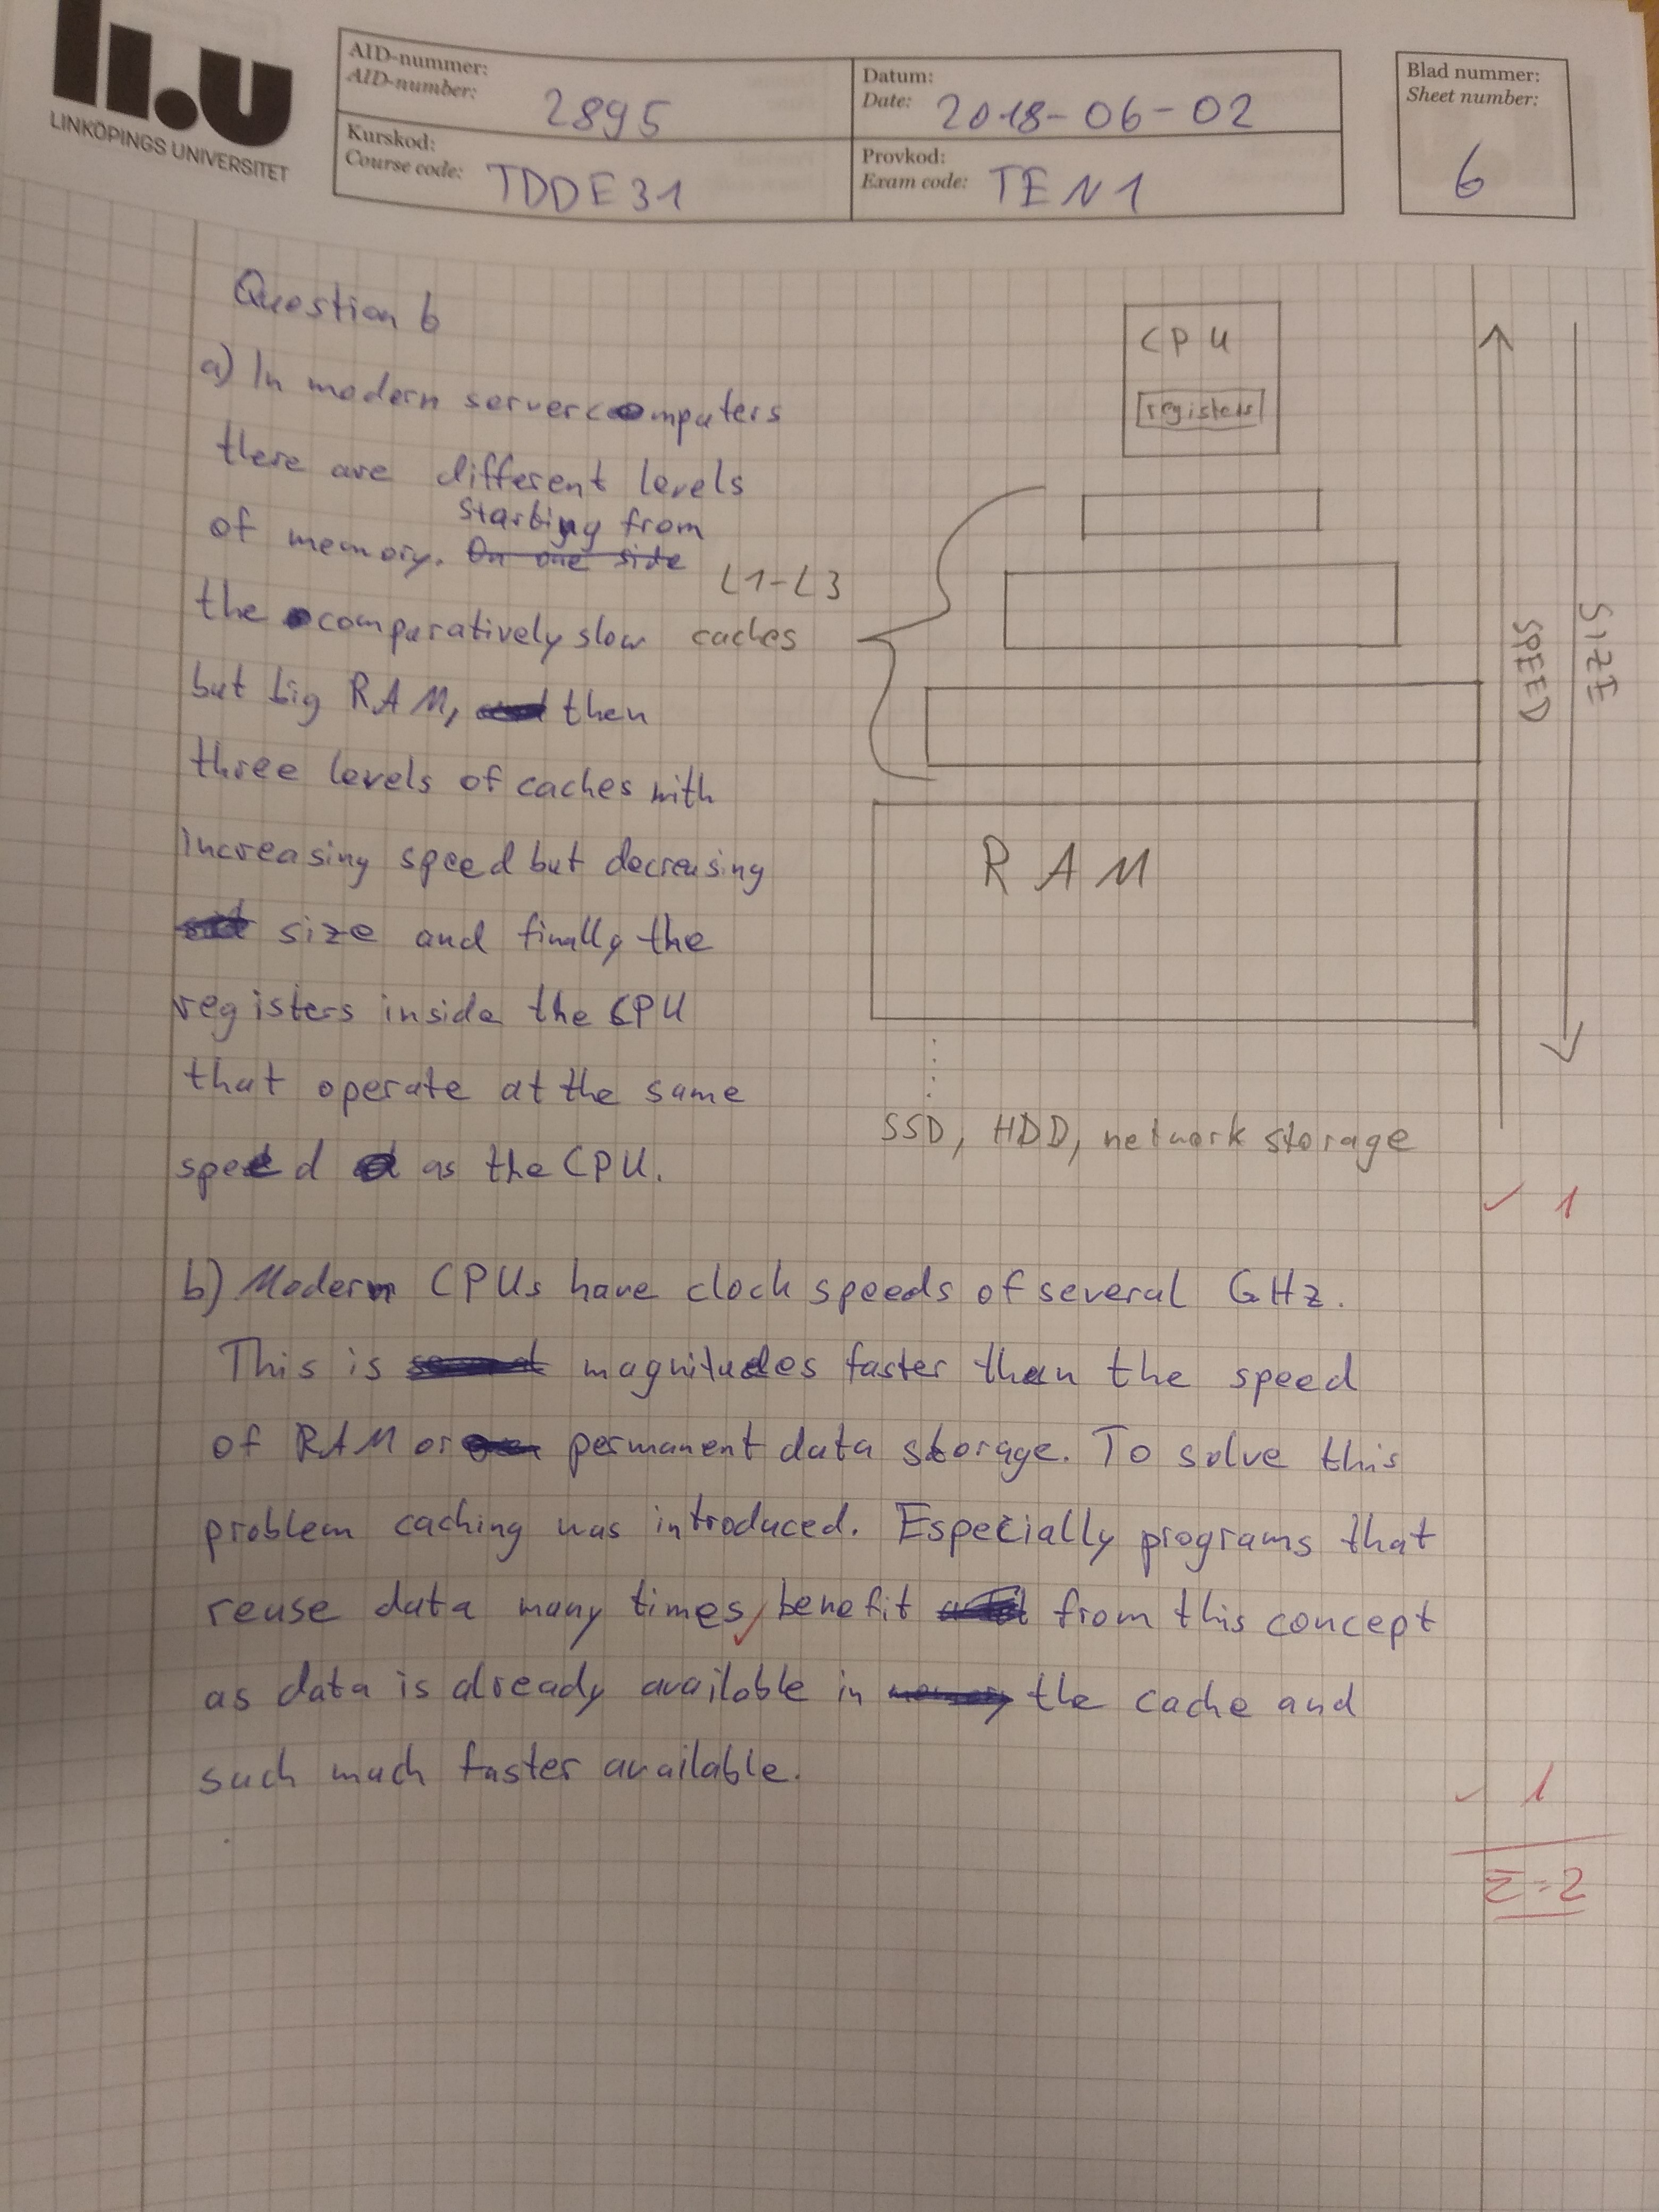 li.u
LINKÖPINGS UNIVERSITET
AID-nummer:
AID-number: 2895
Datum:
Date: 2018-06-02
Blad nummer:
Sheet number:
6
Kurskod:
Course code: TDDE31
Provkod:
Exam code: TEN1
Question 6
a) In modern servercomputers
there are different levels
starting from
of memory. On one side
the comparatively slow
but big RAM, then
three levels of caches with
increasing speed but decreasing
size and finally the
registers inside the CPU
that operate at the same
speed as the CPU.
CPU
registers
L1-L3
caches
RAM
SSD, HDD, network storage
SPEED
SIZE
✓ 1
b) Modern CPUs have clock speeds of several GHz.
This is magnitudes faster than the speed
of RAM or permanent data storage. To solve this
problem caching was introduced. Especially programs that
reuse data many times, benefit from this concept
as data is already available in the cache and
such much faster available.
✓ 1
Σ=2